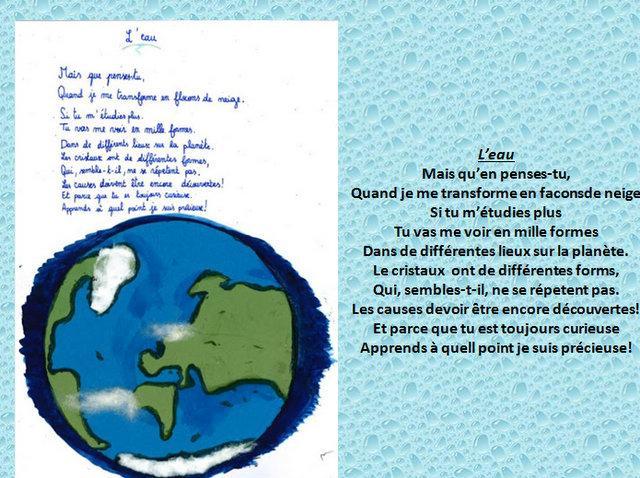 L'eau
Mais que penses-tu,
Quand je me transforme en flocons de neige.
Si tu m'étudies plus.
Tu vas me voir en mille formes.
Dans de différents lieux sur la planète.
Les cristaux ont de différentes formes,
Qui, semble-t-il, ne se répetent pas.
Les causes doivent être encore découvertes!
Et parce que tu es toujours curieuse.
Apprends à quel point je suis précieuse!
L'eau
Mais qu'en penses-tu,
Quand je me transforme en faconsde neige
Si tu m'étudies plus
Tu vas me voir en mille formes
Dans de différentes lieux sur la planète.
Le cristaux ont de différentes forms,
Qui, sembles-t-il, ne se répetent pas.
Les causes devoir être encore découvertes!
Et parce que tu est toujours curieuse
Apprends à quell point je suis précieuse!